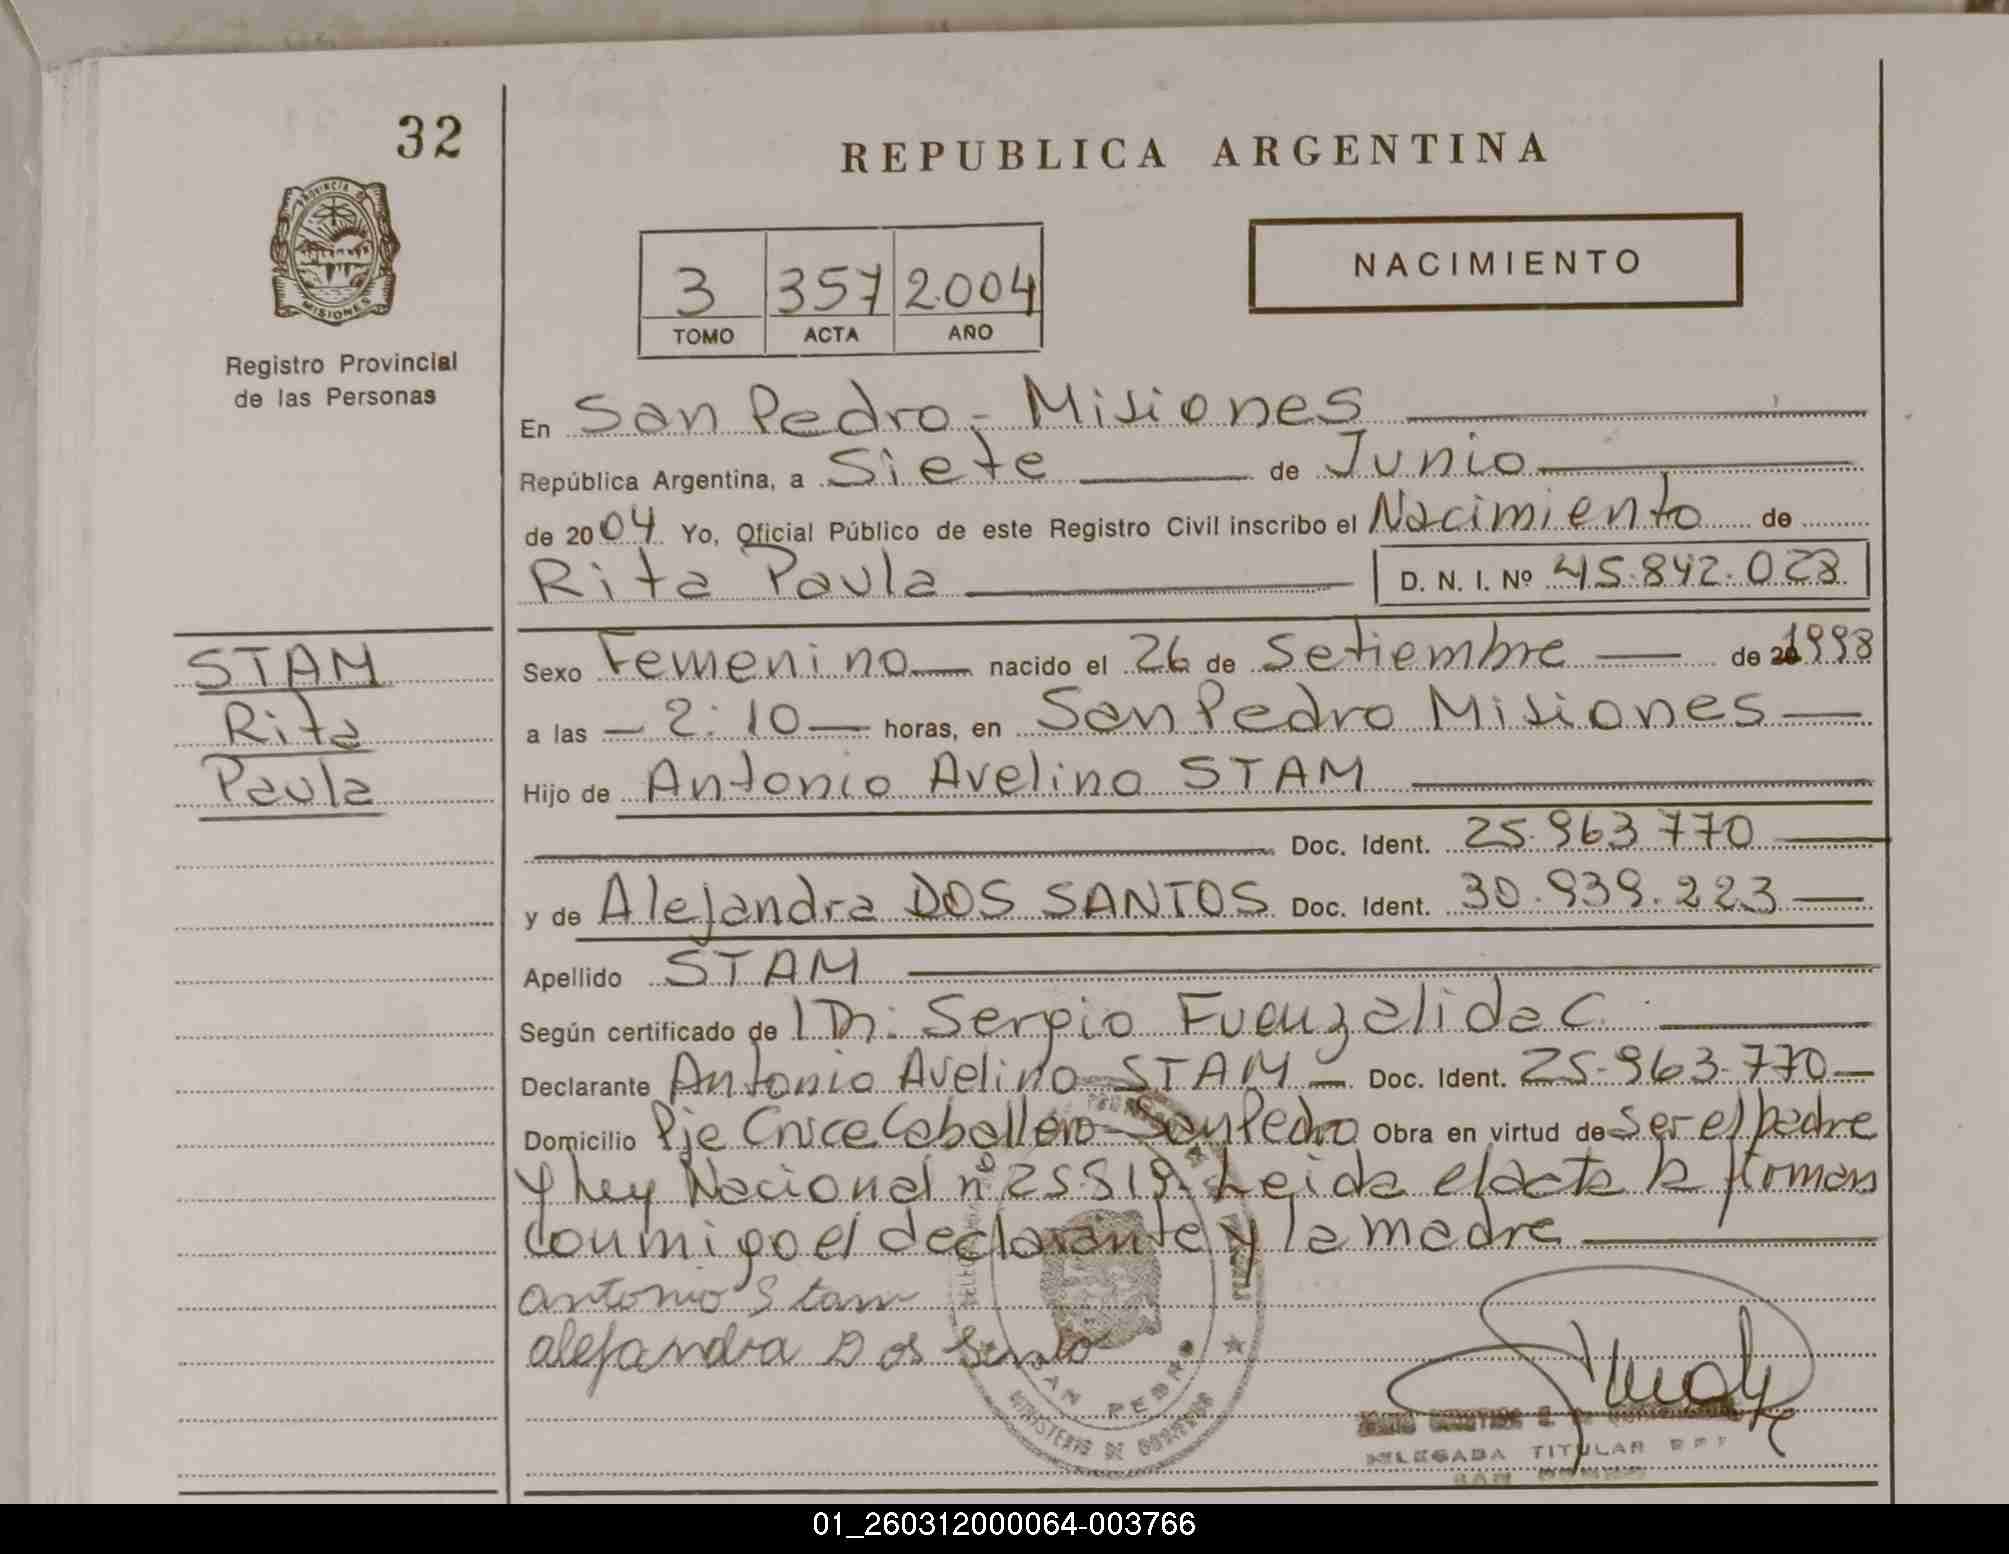 32
REPUBLICA ARGENTINA
PROVINCIA DE
MISIONES
NACIMIENTO
3 357 2.004
TOMO ACTA AÑO
Registro Provincial
de las Personas
En San Pedro - Misiones
República Argentina, a Siete de Junio
de 2004 Yo, Oficial Público de este Registro Civil inscribo el Nacimiento de
Rita Paula D. N. I. Nº 45.842.028
STAM
Rita
Paula
Sexo Femenino nacido el 26 de Setiembre de 1998
a las - 2:10 - horas, en San Pedro Misiones
Hijo de Antonio Avelino STAM
Doc. Ident. 25.963.770
y de Alejandra DOS SANTOS Doc. Ident. 30.939.223
Apellido STAM
Según certificado de Dr: Sergio Fuenzalida C.
Declarante Antonio Avelino STAM - Doc. Ident. 25-963-770
Domicilio Pje Cruce Caballero San Pedro Obra en virtud de ser el padre
y ley Nacional nº 25819. Leida el acta la firman
conmigo el declarante y la madre
antonio Stam
alejandra Dos Santo
SAN PEDRO
MINISTERIO DE GOBIERNO
DELEGADA TITULAR
SAN PEDRO
01_260312000064-003766